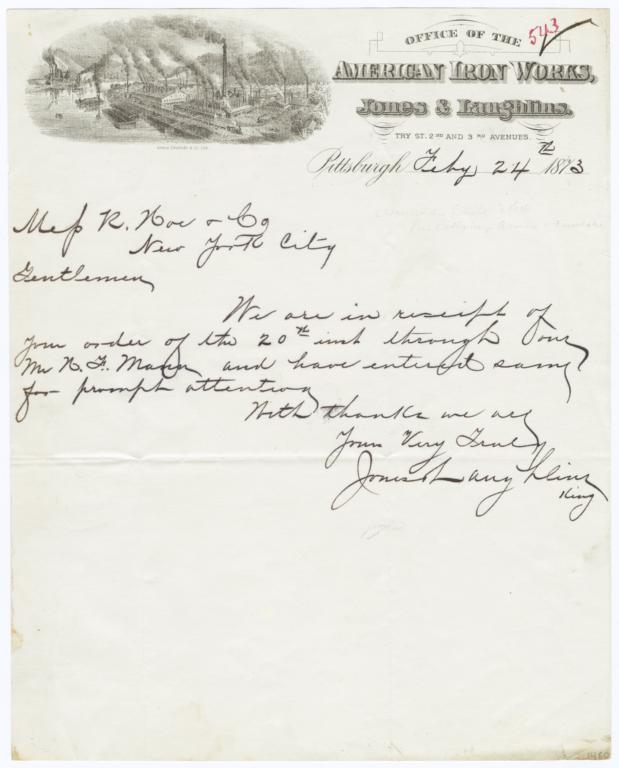 543
OFFICE OF THE
AMERICAN IRON WORKS,
Jones & Laughlins.
TRY ST. 2ND AND 3RD AVENUES.
Pittsburgh Feby 24th 1873
Mess R. Hoe & Co
New York City
Gentlemen
We are in receipt of
your order of the 20th inst through our
Mr N. F. Mann and have entered same
for prompt attention
With thanks we are
Yours Very Truly
Jones & Laughlins
King